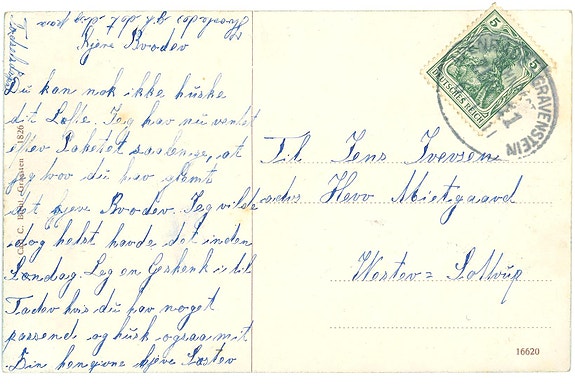 Kjere Broder
Du kan nok ikke huske
dit Löfte. Jeg har nu ventet
efter Paketet saalenge, at
jeg tror du har glemt
det kjere Broder. Jeg vilde
dog helst havde det inden
Søndag. Leg en Geskenk i til
Fader hvis du har noget
passend og husk ogsaa mit
Din hengivne kjere Søster
Til Jens Iversen
adr. Herr Mietgaard
Wester = Sottrup
DEUTSCHES REICH
5 5
GRAVENSTEIN
C. C. Gravenstein 1826
16620